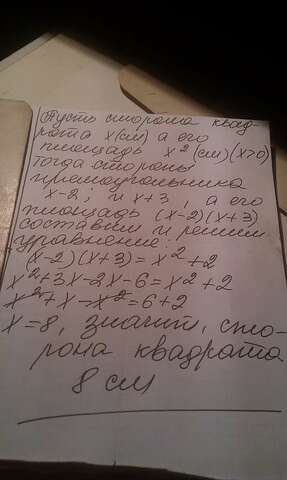 Пусть сторона квад-
рата x(см) а его
площадь x² (см) (x>0)
тогда стороны
прямоугольника
x-2; и x+3, а его
площадь (x-2)(x+3)
составим и решим
уравнение:
(x-2)(x+3)=x²+2
x²+3x-2x-6=x²+2
x²+x-x²=6+2
x=8, значит, сто-
рона квадрата
8 см